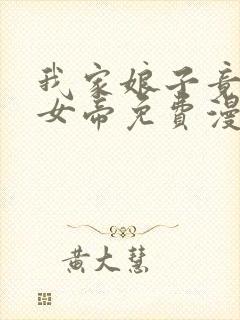 我家娘子竟
女帝免費漫
黄大慧